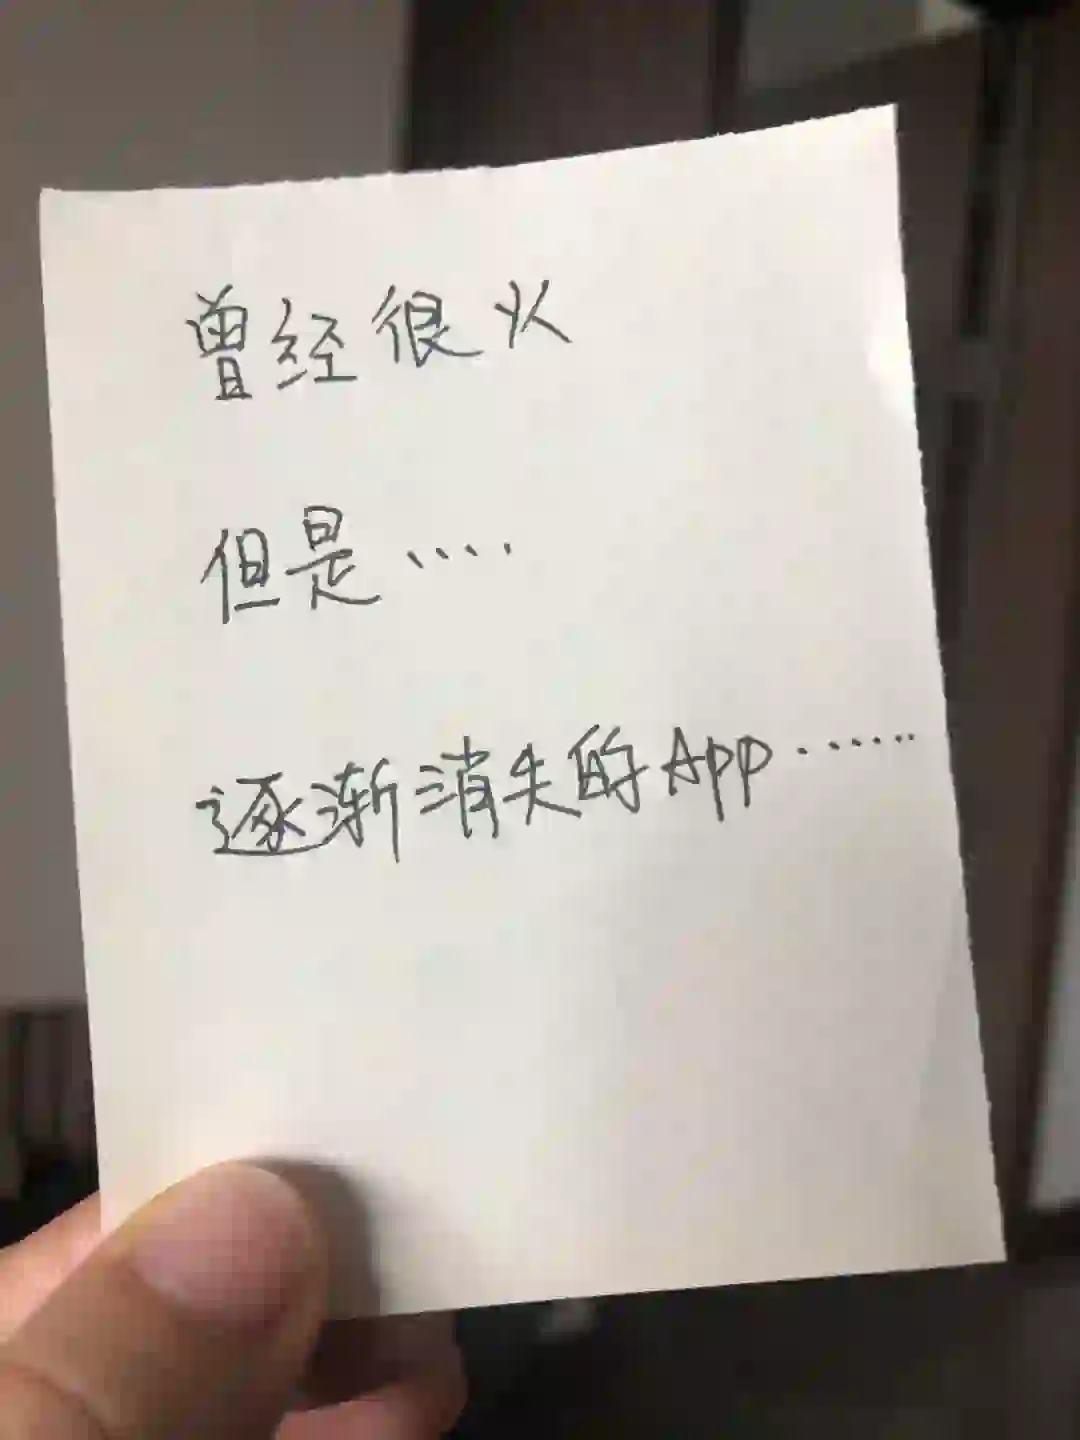 曾经很火
但是....
逐渐消失的App......